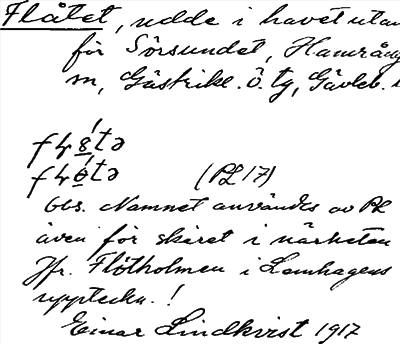 Flåtet, udde i havet utan
för Sörsundet, Hamrång
m, Gästrikl. Ö. tg, Gävleb.
(PL 17)
Obs. Namnet användes av PL
även för skäret i närheten
Jfr. Flötholmen i Lemhagens
uppteckn.!
Einar Lindkvist 1917